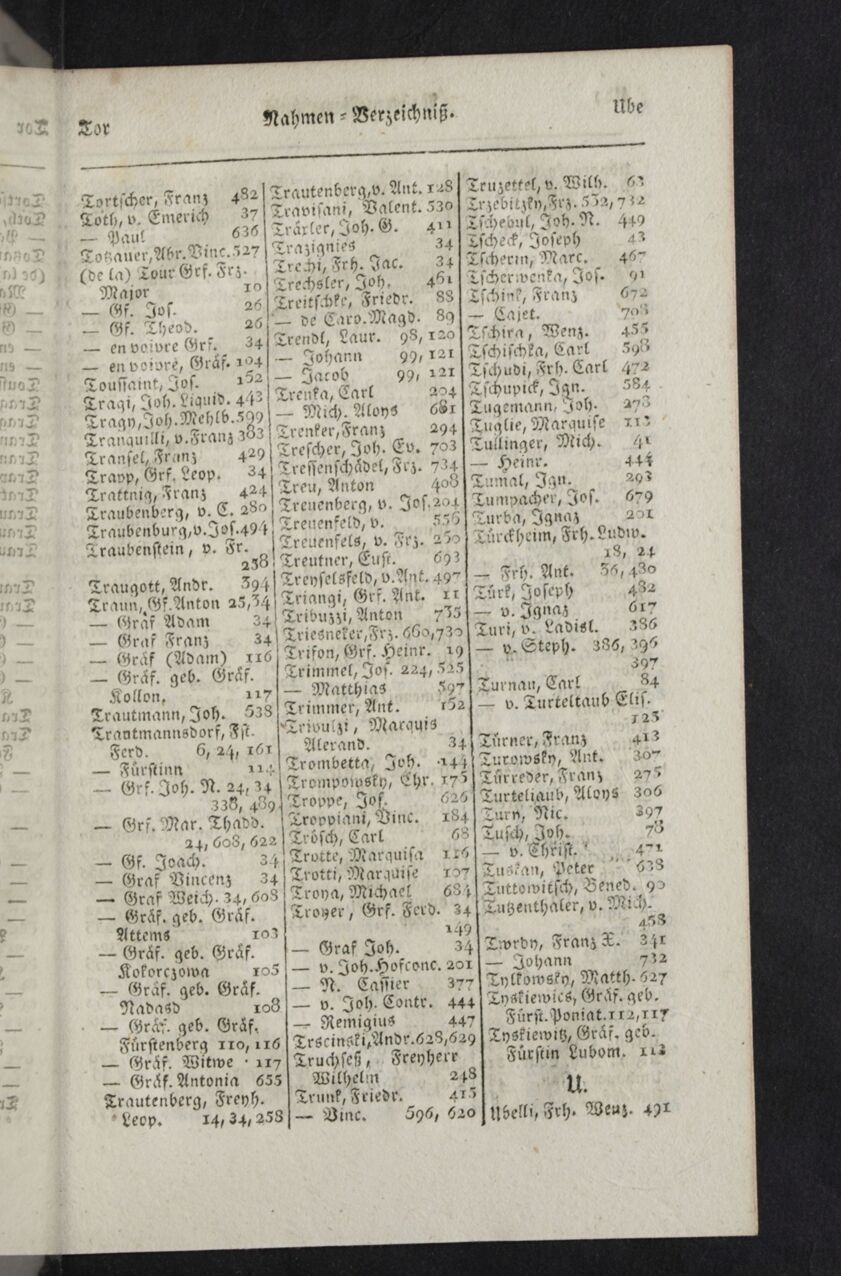 Tor
Nahmen = Verzeichniß.
Ube
Tortscher, Franz 482
Toth, v. Emerich 37
— Paul 636
Totzauer, Abr. Vinc. 527
(de la) Tour Grf. Frz.
Major 10
— Gf. Jos. 26
— Gf. Theod. 26
— en voivre Grf. 34
— en voivre, Gräf. 104
Toussaint, Jos. 152
Tragi, Joh. Liquid. 443
Tragy, Joh. Mehlb. 599
Tranquilli, v. Franz 383
Transel, Franz 429
Trapp, Grf. Leop. 34
Trattnig, Franz 424
Traubenberg, v. C. 280
Traubenburg, v. Jos. 494
Traubenstein, v. Fr.
258
Traugott, Andr. 394
Traun, Gf. Anton 25, 34
— Graf Adam 34
— Graf Franz 34
— Gräf (Adam) 116
— Gräf. geb. Gräf.
Kollon. 117
Trautmann, Joh. 538
Trautmannsdorf, Fst.
Ferd. 6, 24, 161
— Fürstinn 114
— Grf. Joh. N. 24, 34
338, 489
— Grf. Mar. Thadd.
24, 608, 622
— Gf. Joach. 34
— Graf Vincenz 34
— Graf Weich. 34, 608
— Gräf. geb. Gräf.
Attems 103
— Gräf. geb. Gräf.
Kokorczowa 105
— Gräf. geb. Gräf.
Nadasd 108
— Gräf. geb. Gräf.
Fürstenberg 110, 116
— Gräf. Witwe 117
— Gräf. Antonia 655
Trautenberg, Freyh.
Leop. 14, 34, 258
Trautenberg, v. Ant. 128
Travisani, Valent. 530
Träxler, Joh. G. 411
Trazignies 34
Trechi, Frh. Jac. 34
Trechsler, Joh. 461
Treitschke, Friedr. 88
— de Caro. Magd. 89
Trendl, Laur. 98, 120
— Johann 99, 121
— Jacob 99, 121
Trenka, Carl 204
— Mich. Aloys 681
Trenker, Franz 294
Trescher, Joh. Ev. 703
Tressenschädel, Frz. 734
Treu, Anton 408
Treuenberg, v. Jos. 204
Treuenfeld, v. 556
Treuenfels, v. Frz. 260
Treutner, Eust. 693
Treyselsfeld, v. Ant. 497
Triangi, Grf. Ant. 11
Tribuzzi, Anton 735
Triesneker, Frz. 660, 730
Trifon, Grf. Heinr. 19
Trimmel, Jos. 224, 525
— Matthias 597
Trimmer, Ant. 152
Trivulzi, Marquis
Alexand. 34
Trombetta, Joh. 144
Trompowsky, Chr. 175
Troppe, Jos. 626
Troppiani, Vinc. 184
Trösch, Carl 68
Trotte, Marquisa 116
Trotti, Marquise 107
Troya, Michael 684
Troyer, Grf. Ferd. 34
149
— Graf Joh. 34
— v. Joh. Hofconc. 201
— N. Cassier 377
— v. Joh. Contr. 444
— Remigius 447
Trscinski, Andr. 628, 629
Truchseß, Freyherr
Wilhelm 248
Trunk, Friedr. 415
— Vinc. 596, 620
Truzettel, v. Wilh. 63
Trzebitzky, Frz. 552, 732
Tschebul, Joh. N. 449
Tscheck, Joseph 43
Tscherin, Marc. 467
Tscherwenka, Jos. 91
Tschink, Franz 672
— Cajet. 708
Tschira, Wenz. 455
Tschischka, Carl 598
Tschudi, Frh. Carl 472
Tschupick, Ign. 584
Tugemann, Joh. 278
Tuglie, Marquise 113
Tullinger, Mich. 41
— Heinr. 444
Tumal, Ign. 293
Tumpacher, Jos. 679
Turba, Ignaz 201
Türckheim, Frh. Ludw.
18, 24
— Frh. Ant. 36, 480
Türk, Joseph 482
— v. Ignaz 617
Turi, v. Ladisl. 386
— v. Steph. 386, 396
397
Turnau, Carl 84
— v. Turteltaub Elis.
125
Türner, Franz 413
Turowsky, Ant. 307
Türreder, Franz 275
Turteltaub, Aloys 306
Turn, Nic. 397
Tusch, Joh. 78
— v. Christ. 471
Tuskan, Peter 638
Tuttowitsch, Bened. 90
Tutzenthaler, v. Mich.
458
Twrdy, Franz X. 341
— Johann 732
Tylkowsky, Matth. 627
Tyskiewics, Gräf. geb.
Fürst. Poniat. 112, 117
Tyskiewitz, Gräf. geb.
Fürstin Lubom. 113
U.
Ubelli, Frh. Wenz. 491